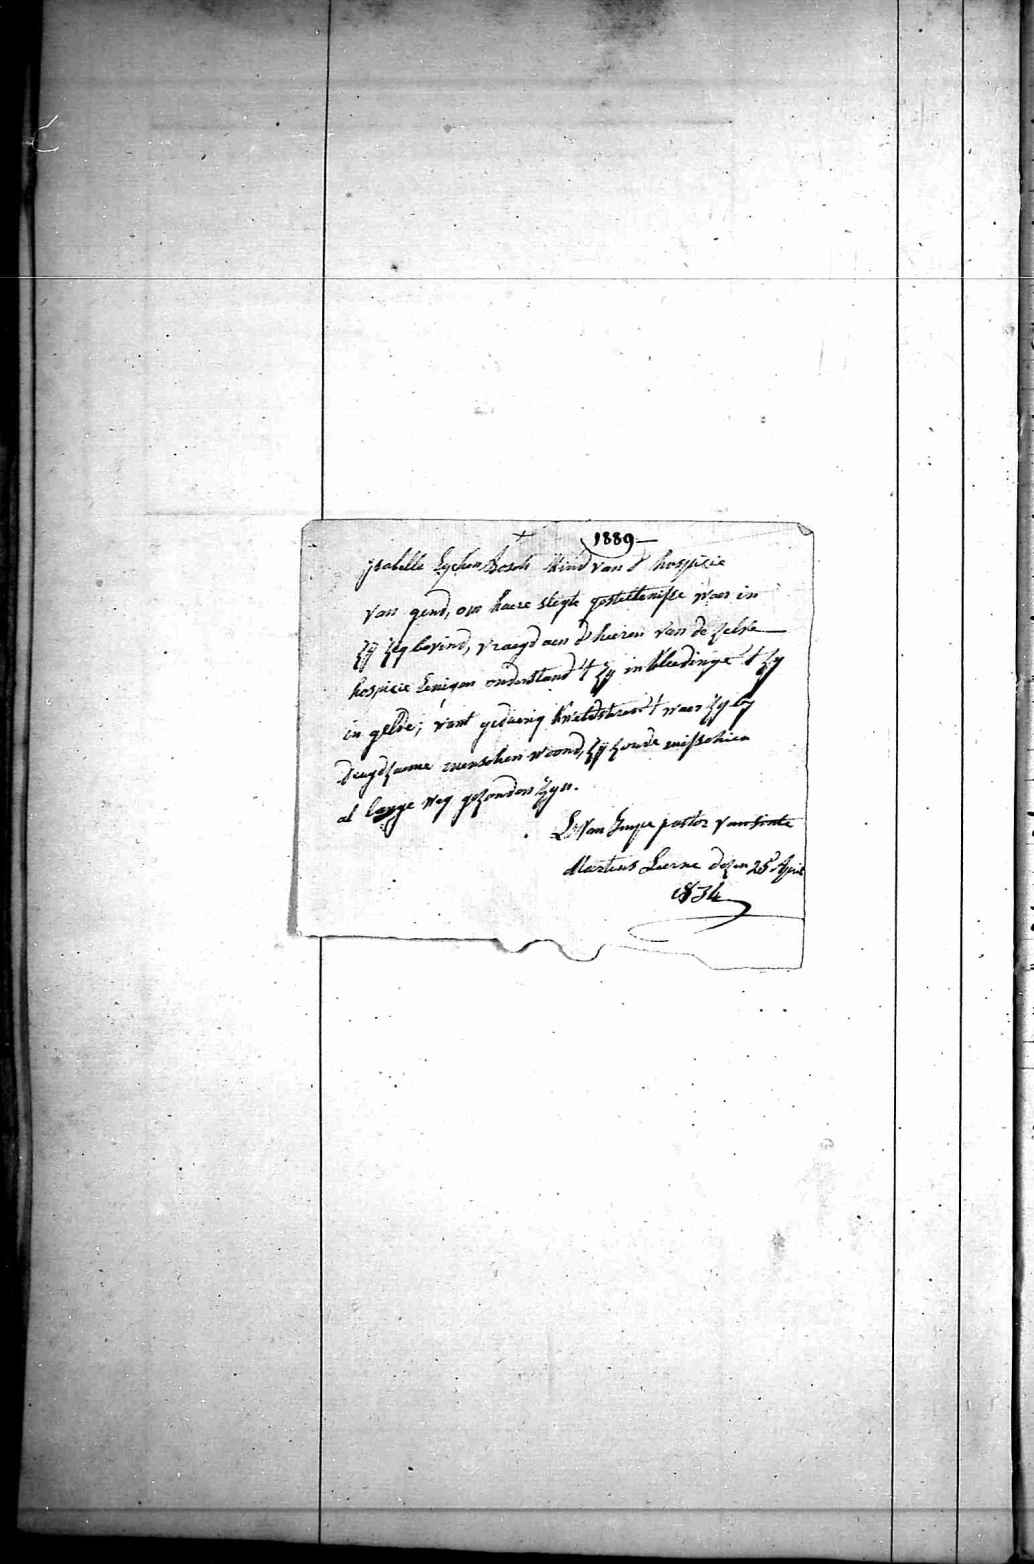 + 1889
Isabelle Eycken Bosch kind van d' hospicie
van gend, om haere slegte gesteltenisse waer in
zy zig bevind, vraegd aen d'heeren van de zelve
hospicie eenigen onderstand 't zy in kleedinge 't zy
in gelde; want gedurig waer zy by
deugdzaeme menschen woond, zy zoude misschien
al lange weg gezonden zyn.
Van Impe pastor van sinte
Martens Leerne dezen 25 April
1834